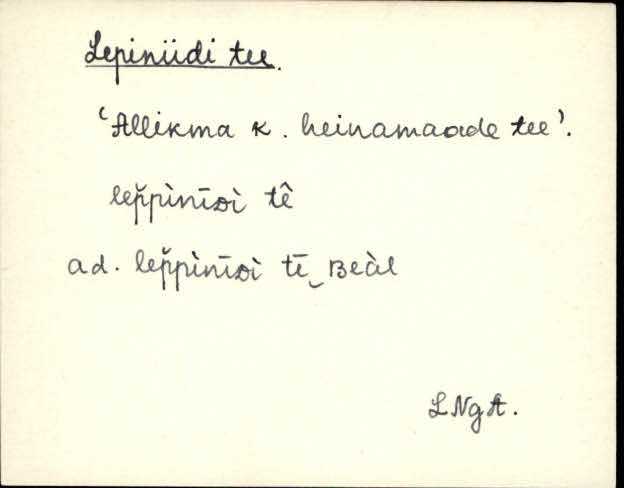 Lepiniidi tee.
'Allikma k. heinamaade tee'.
lep̆pìnīᴅì tê
ad. lep̆pìnīᴅì tī‿ʙeàl
LNgA.